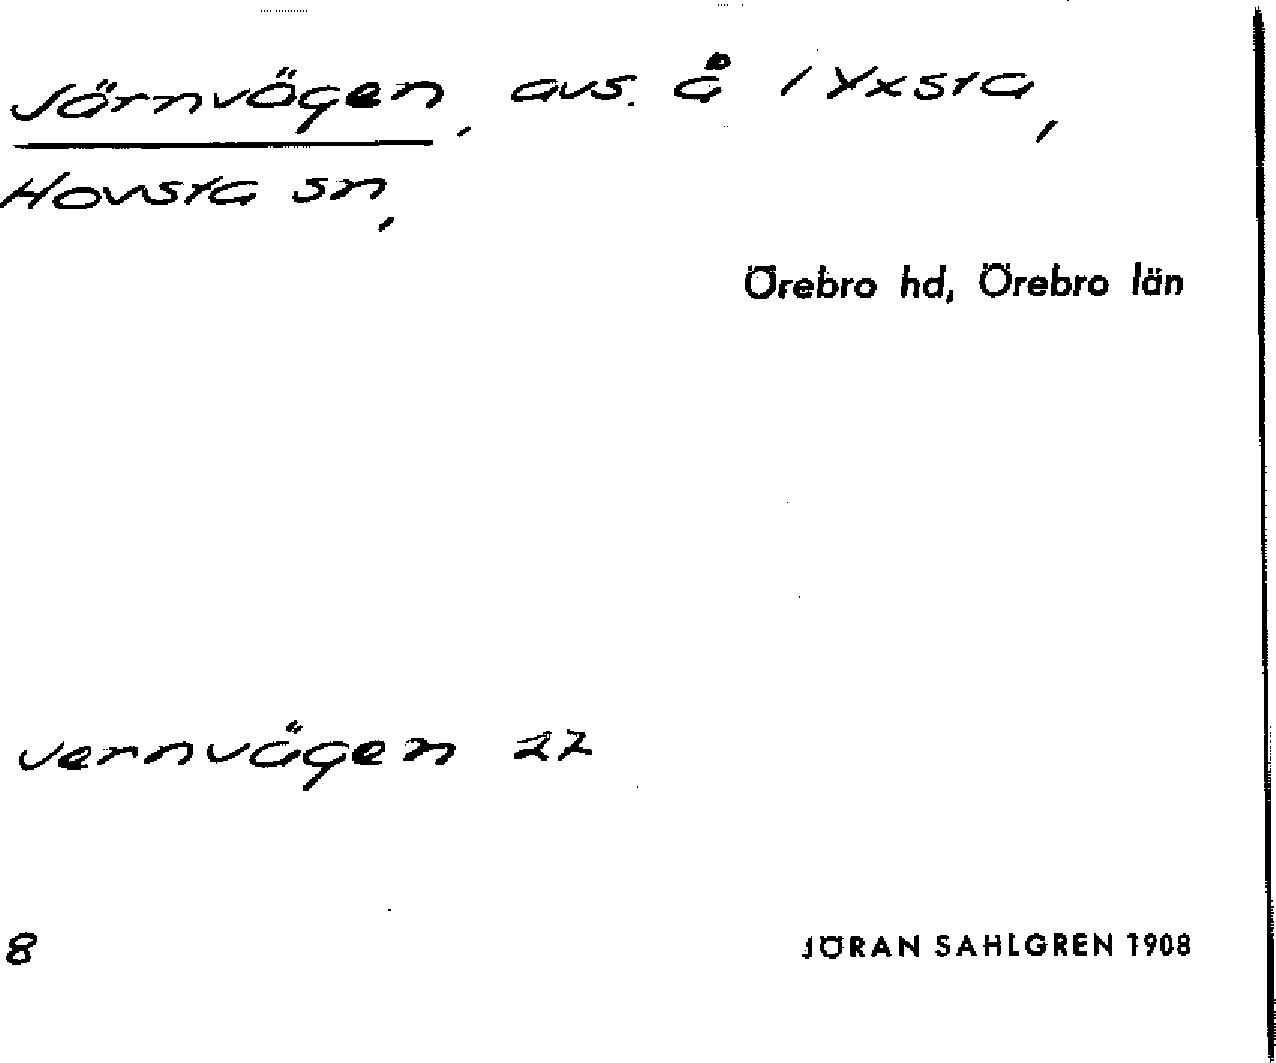 Järnvägen, avs. å i Yxsta,
Hovsta sn,
Örebro hd, Örebro län
Jernvägen 22
8
JÖRAN SAHLGREN 1908